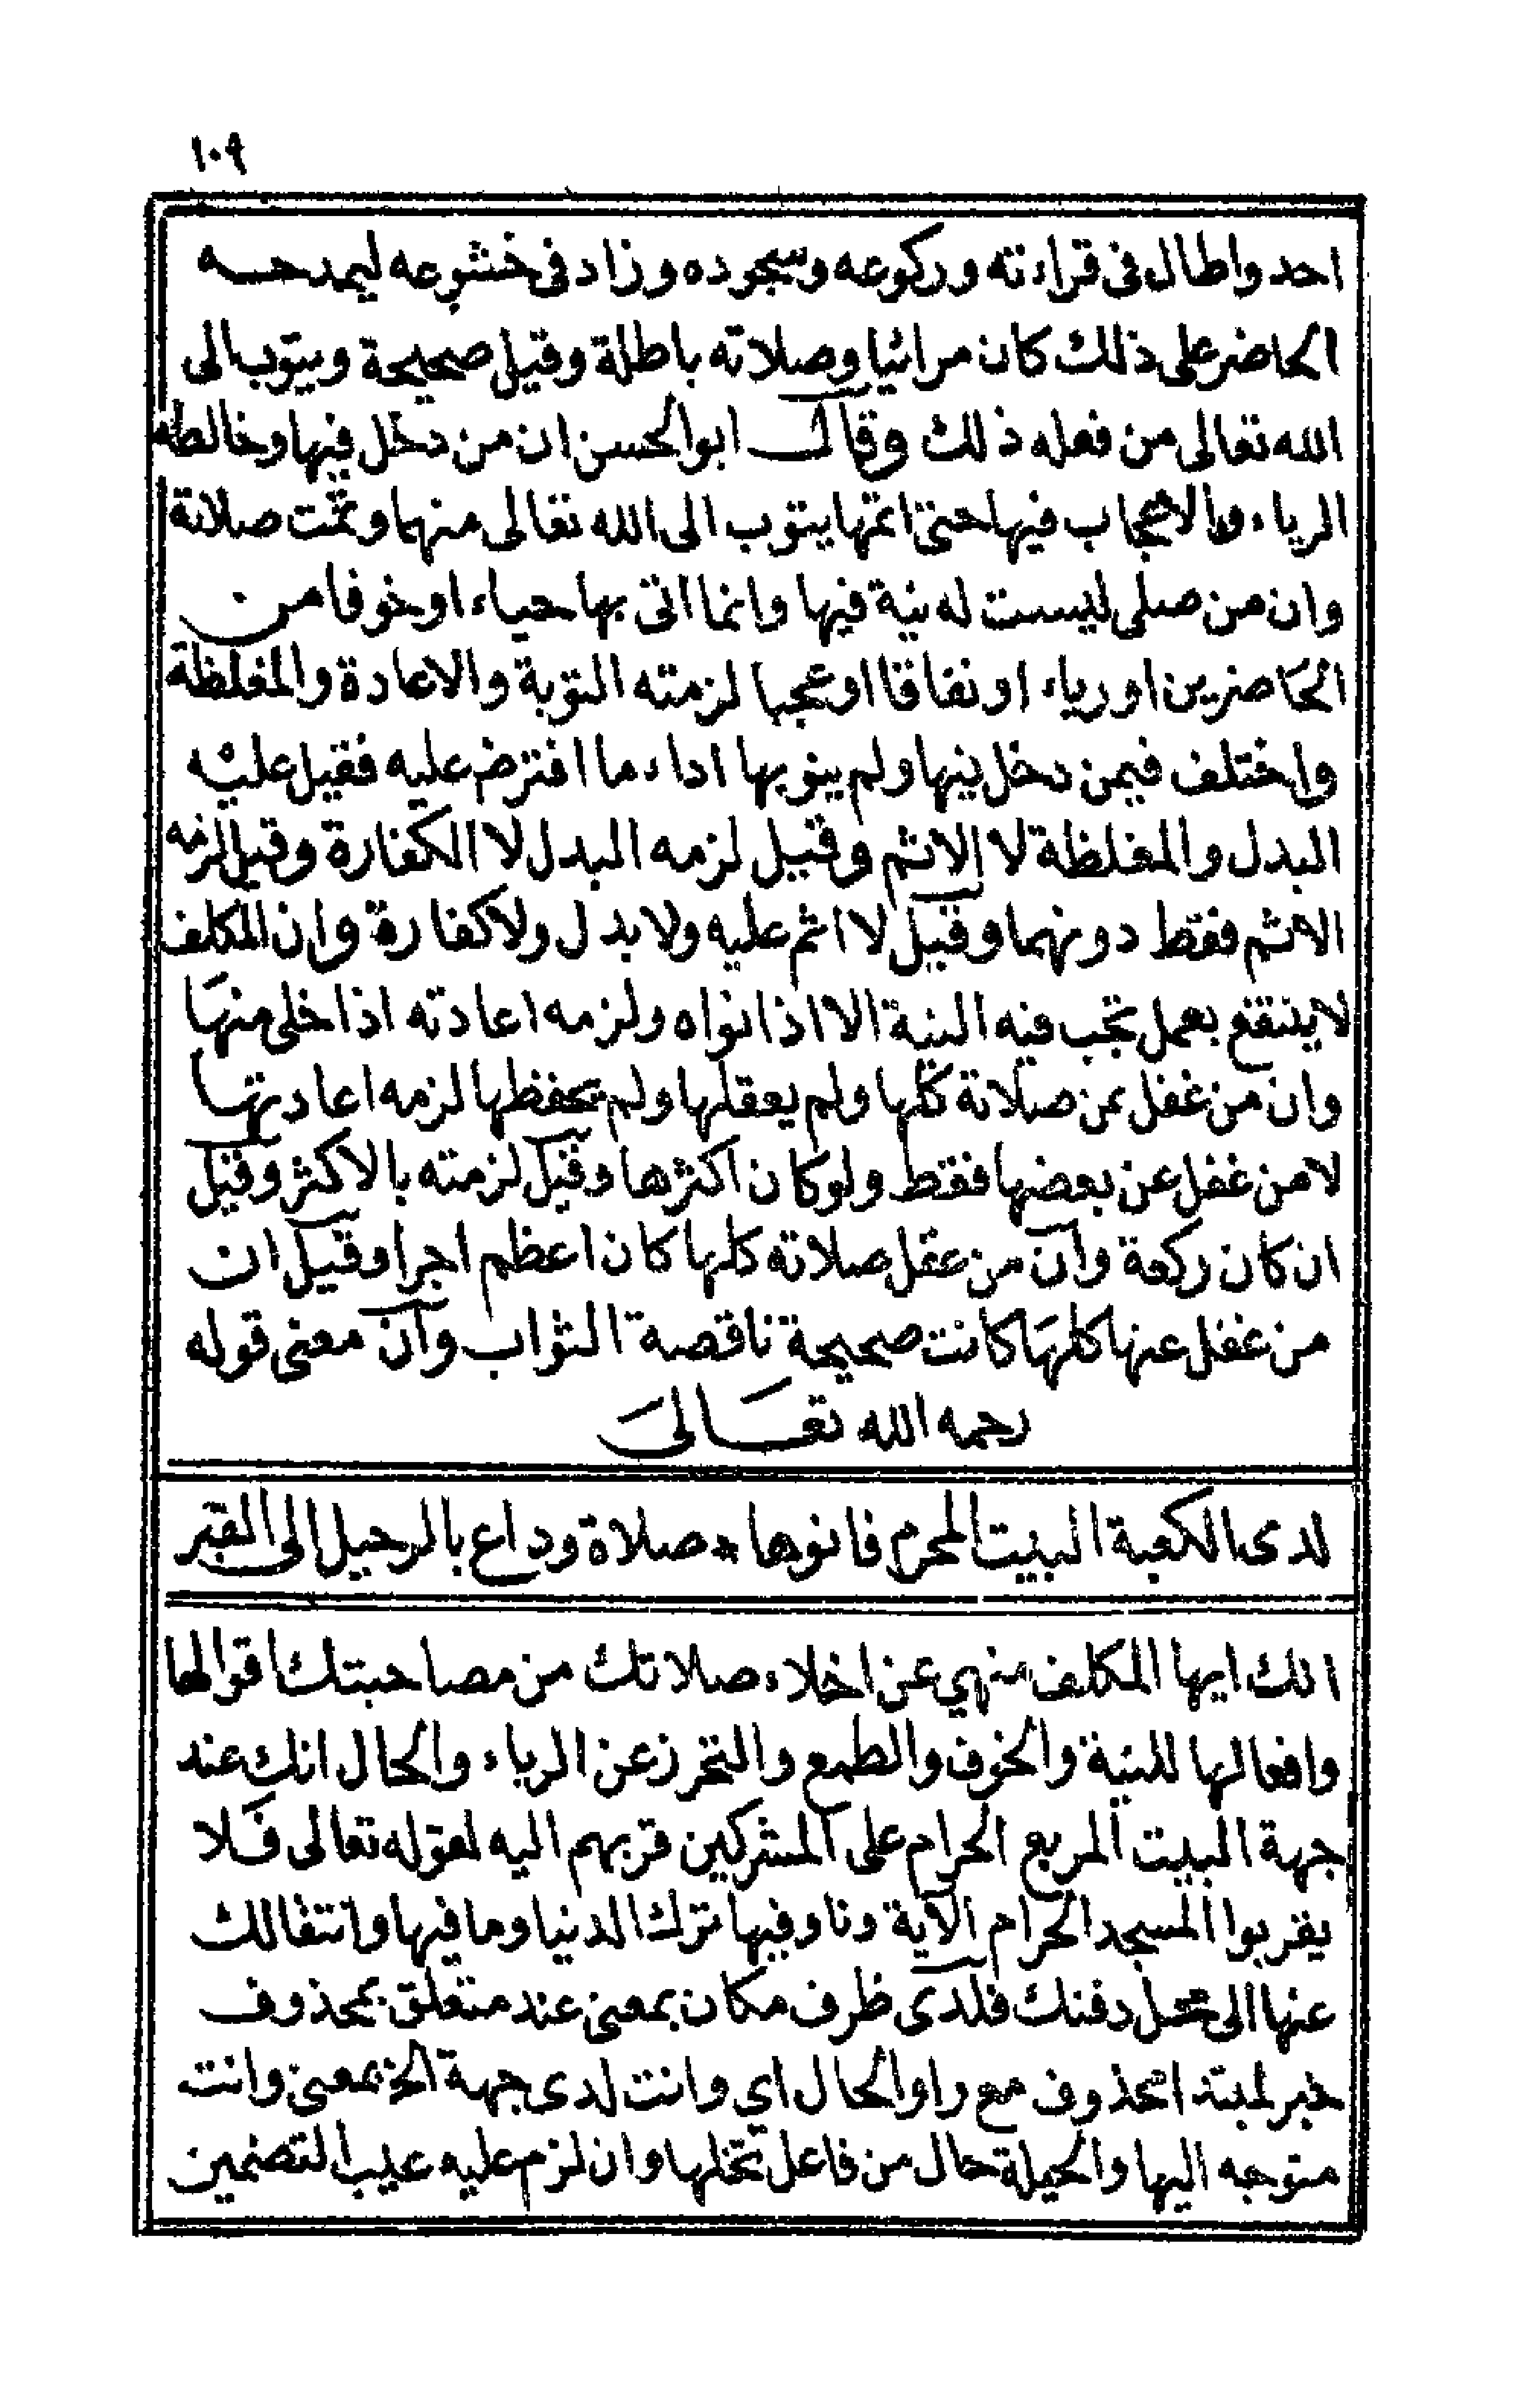 ١٠٩
احد واطال فى قراءته وركوعه وسجوده وزاد فى خشوعه ليمدحه
الحاضر على ذلك كان مرائيا وصلاته باطلة وقيل صحيحة ويتوب الى
الله تعالى من فعله ذلك وقال ابوالحسن ان من دخل فيها وخالطه
الرياء والاعجاب فيها حتى اتمها يتوب الى الله تعالى منهما وتمت صلاته
وان من صلى ليست له نية فيها وانما اتى بها حياء او خوفا من
الحاضرين او رياء او نفاقا او عجبا لزمته التوبة والاعادة والمغلظة
واختلف فيمن دخل فيها ولم ينو بها اداء ما افترض عليه فقيل عليه
البدل والمغلظة لا الاثم وقيل لزمه البدل لا الكفارة وقيل لزمه
الاثم فقط دونهما وقيل لا اثم عليه ولا بدل ولا كفارة وان المكلف
لا ينتفع بعمل تجب فيه النية الا اذا نواه ولزمه اعادته اذا خلى منها
وان من غفل عن صلاته كلها ولم يعقلها ولم يحفظها لزمه اعادتها
لا من غفل عن بعضها فقط ولو كان اكثرها وقيل لزمته بالاكثر وقيل
ان كان ركعة وان من عقل صلاته كلها كان اعظم اجرا وقيل ان
من غفل عنها كلها كانت صحيحة ناقصة الثواب وان معنى قوله
رحمه الله تعالى
لدى الكعبة البيت المحرم فانوها * صلاة وداع بالرحيل الى القبر
انك ايها المكلف منهي عن اخلاء صلاتك من مصاحبتك اقوالها
وافعالها للنية والخوف والطمع والتحرز عن الرياء والحال انك عند
جهة البيت المربع الحرام على المشركين قربهم اليه لقوله تعالى فلا
يقربوا المسجد الحرام الآية وناو فيها ترك الدنيا وما فيها وانتقالك
عنها الى محل دفنك فلدى ظرف مكان بمعنى عند متعلق بمحذوف
خبر لمبتدا محذوف مع واو الحال اي وانت لدى جهة الخ بمعنى وانت
متوجه اليها والجملة حال من فاعل تخلها وان لزم عليه عيب التضمين